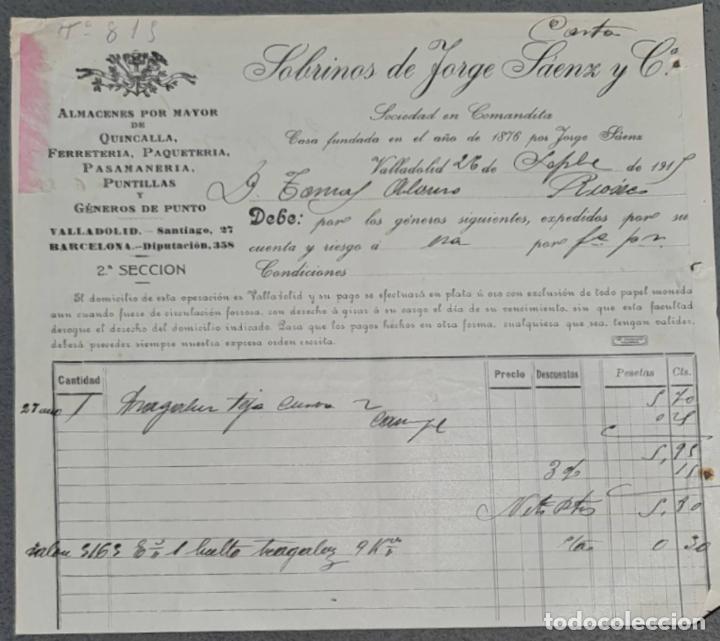 Nº 815
Carta
Sobrinos de Jorge Sáenz y Cª
Sociedad en Comandita
Casa fundada en el año de 1876 por Jorge Sáenz
ALMACENES POR MAYOR
DE
QUINCALLA,
FERRETERIA, PAQUETERIA,
PASAMANERIA,
PUNTILLAS
Y
GÉNEROS DE PUNTO
VALLADOLID.—Santiago, 27
BARCELONA.—Diputación, 358
2.ª SECCION
Valladolid 26 de Sepbe de 1915
D. Tomas Alonso Rioseco
Debe: por los géneros siguientes, expedidos por su
cuenta y riesgo á por
Condiciones
El domicilio de esta operación es Valladolid y su pago se efectuará en plata ú oro con exclusión de todo papel moneda
aun cuando fuese de circulación forzosa, con derecho á girar á su cargo el día de su vencimiento, sin que esta facultad
derogue el derecho del domicilio indicado. Para que los pagos hechos en otra forma, cualquiera que sea, tengan validez,
deberá preceder siempre nuestra expresa orden escrita.
Cantidad Precio Descuentos Pesetas Cts.
1 tragaluz teja 5 70
0 25
5,95
3 % 15
Neto Ptas 5,80
talon 3163 1 bulto tragaluz 9 Kos 0 30
todocoleccion